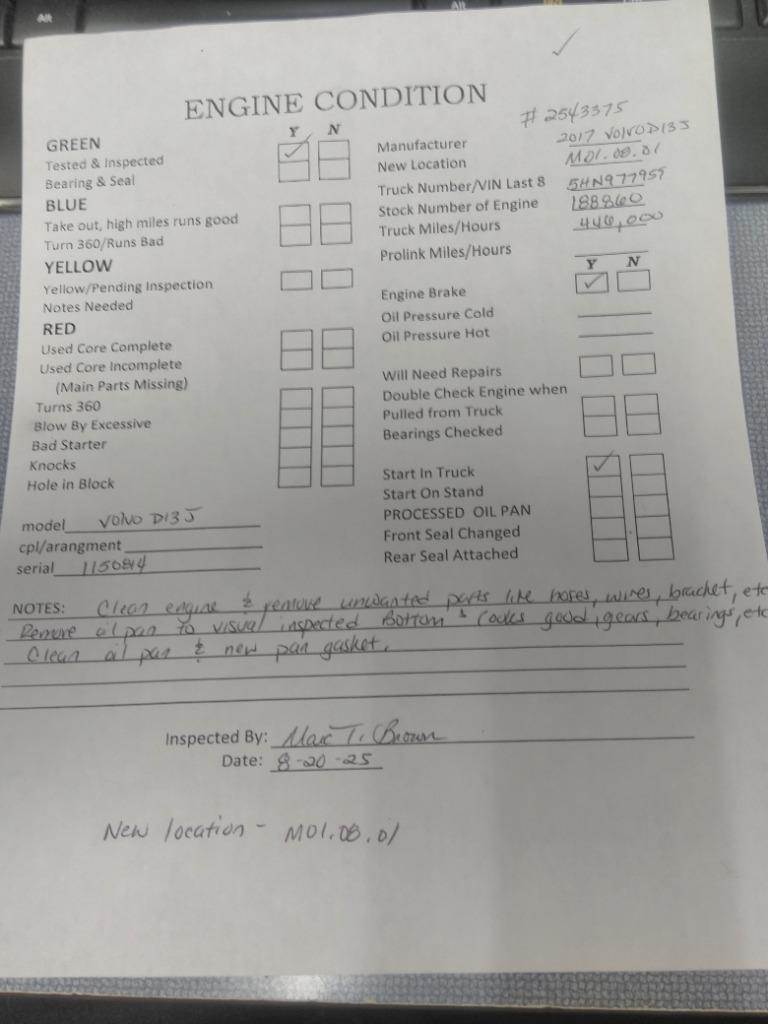 ENGINE CONDITION
# 2543375
Y N
GREEN
Tested & Inspected ✓
Bearing & Seal
BLUE
Take out, high miles runs good
Turn 360/Runs Bad
YELLOW
Yellow/Pending Inspection
Notes Needed
RED
Used Core Complete
Used Core Incomplete
(Main Parts Missing)
Turns 360
Blow By Excessive
Bad Starter
Knocks
Hole in Block
model VOLVO D13J
cpl/arangment
serial 1150814
Manufacturer 2017 VOLVO D13J
New Location M01.08.01
Truck Number/VIN Last 8 5HN977955
Stock Number of Engine 188860
Truck Miles/Hours 446,000
Prolink Miles/Hours
Y N
Engine Brake ✓
Oil Pressure Cold
Oil Pressure Hot
Will Need Repairs
Double Check Engine when
Pulled from Truck
Bearings Checked
Start In Truck ✓
Start On Stand
PROCESSED OIL PAN
Front Seal Changed
Rear Seal Attached
NOTES: Clean engine & remove unwanted parts like hoses, wires, bracket, etc
Remove oil pan to visual inspected Bottom & looks good, gears, bearings, etc
Clean oil pan & new pan gasket.
Inspected By: Marc T. Brown
Date: 8-20-25
New location - M01.08.01